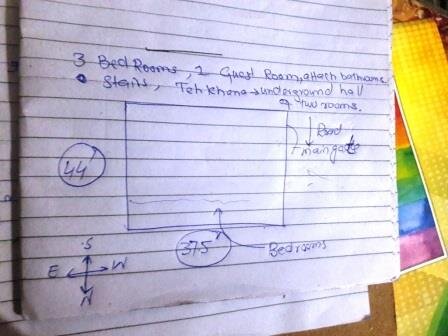 3 Bed Rooms, 1 Guest Room, attach bathrooms
• Stairs, Tehkhana → underground hall
of two rooms.
Road
maingate
44'
375'
Bedrooms
S
E W
N